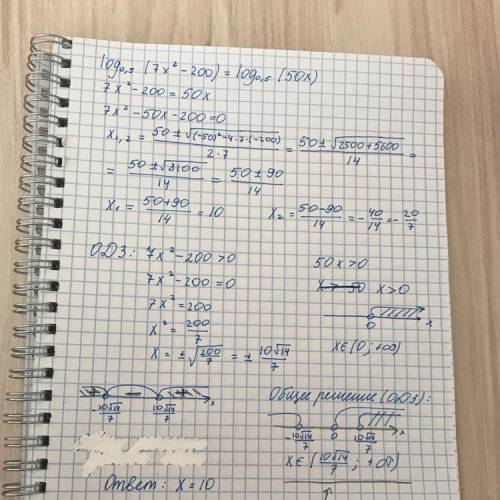 log₀,₅ (7x² - 200) = log₀,₅ (50x)
7x² - 200 = 50x
7x² - 50x - 200 = 0
x₁,₂ = (50 ± √((-50)² - 4·7·(-200)))/(2·7) = (50 ± √(2500 + 5600))/14 =
= (50 ± √8100)/14 = (50 ± 90)/14
x₁ = (50 + 90)/14 = 10 x₂ = (50 - 90)/14 = -40/14 = -20/7
ОДЗ: 7x² - 200 > 0
7x² - 200 = 0
7x² = 200
x² = 200/7
x = ± √(200/7) = ± 10√14/7
50x > 0
x > 50 x > 0
0 x
x ∈ (0; +∞)
+ - + x
-10√14/7 10√14/7
Общее решение (ОДЗ):
-10√14/7 0 10√14/7 x
x ∈ (10√14/7; +∞)
Ответ: x = 10